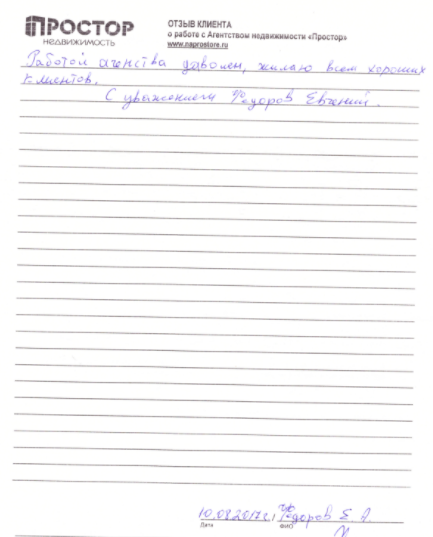 ПРОСТОР
НЕДВИЖИМОСТЬ
ОТЗЫВ КЛИЕНТА
о работе с Агентством недвижимости «Простор»
www.naprostore.ru
Работой агенства даволен, жилаю всем хороших
клиентов.
С уважением Федоров Евгений.
10.08.2017г. Федоров Е. А.
Дата ФИО